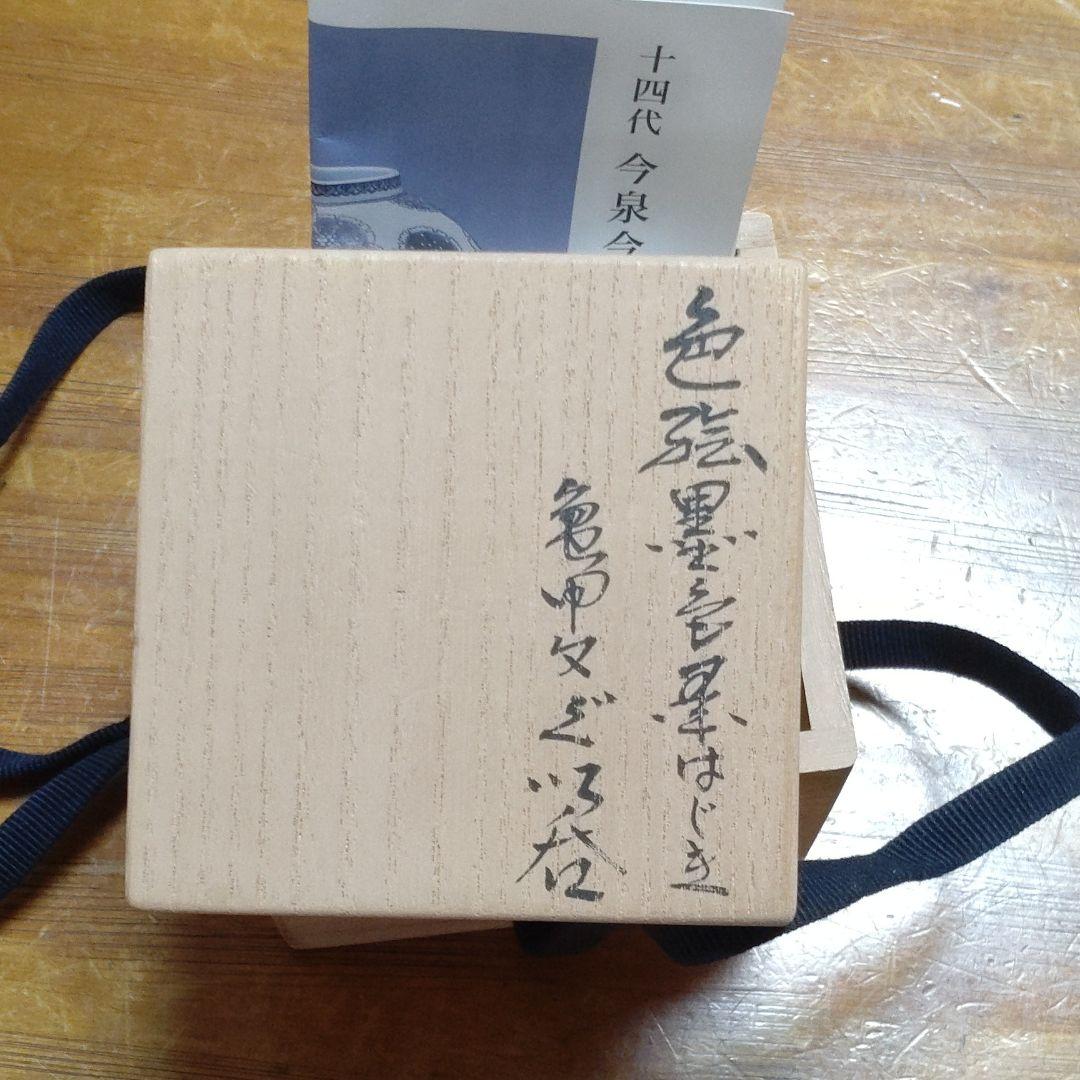 十四代 今泉今
色絵墨色墨はじき
亀甲文ぐい呑